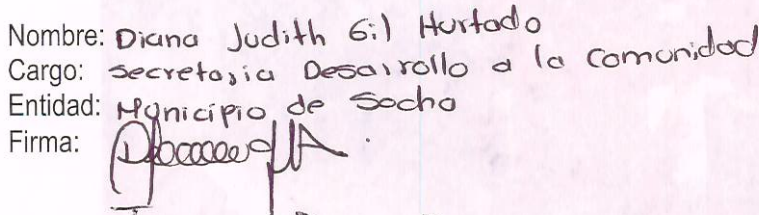 Nombre: Diana Judith Gil Hurtado
Cargo: Secretaria Desarrollo a la Comunidad
Entidad: Municipio de Socha
Firma: